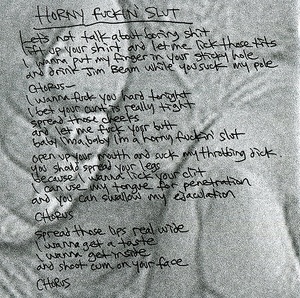 HORNY FUCKIN' SLUT
Let's not talk about boring shit
lift up your shirt and let me lick those tits
I wanna put my finger in your sticky hole
and drink Jim Beam while you suck my pole
CHORUS—
I wanna fuck you hard tonight
I bet your cunt is really tight
spread those cheeks
and let me fuck your butt
baby I'ma baby I'm a horny fuckin' slut
open up your mouth and suck my throbbing dick.
you should spread your legs
because I wanna lick your clit
I can use my tongue for penetration
and you can swallow my ejaculation
CHORUS
spread those lips real wide
I wanna get a taste
I wanna get inside
and shoot cum on your face
CHORUS